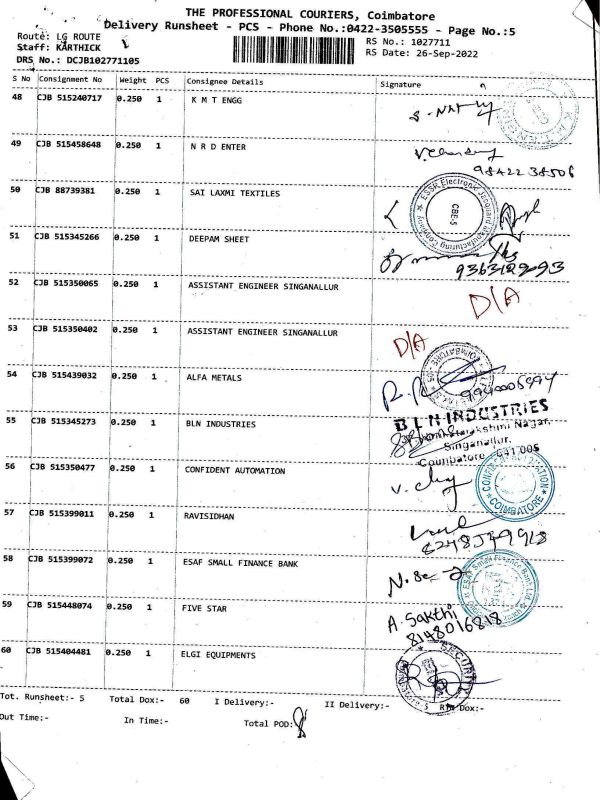 THE PROFESSIONAL COURIERS, Coimbatore
Delivery Runsheet - PCS - Phone No.:0422-3505555 - Page No.:5
Route: LG ROUTE
RS No.: 1027711
Staff: KARTHICK
RS Date: 26-Sep-2022
DRS No.: DCJB102771105
S No Consignment No Weight PCS Consignee Details Signature
48 CJB 515240717 0.250 1 K M T ENGG
49 CJB 515458648 0.250 1 N R D ENTER
9842238506
50 CJB 88739381 0.250 1 SAI LAXMI TEXTILES
ESSR Electronic Jacquard Manufacturing Company
CBE-5
51 CJB 515345266 0.250 1 DEEPAM SHEET
52 CJB 515350065 0.250 1 ASSISTANT ENGINEER SINGANALLUR D/A
53 CJB 515350402 0.250 1 ASSISTANT ENGINEER SINGANALLUR D/A
54 CJB 515439032 0.250 1 ALFA METALS
55 CJB 515345273 0.250 1 BLN INDUSTRIES
BLN INDUSTRIES
Nagar,
Singanallur,
Coimbatore - 641 005
56 CJB 515350477 0.250 1 CONFIDENT AUTOMATION
COIMBATORE
57 CJB 515399011 0.250 1 RAVISIDHAN
58 CJB 515399072 0.250 1 ESAF SMALL FINANCE BANK
ESAF Small Finance Bank Ltd
59 CJB 515448074 0.250 1 FIVE STAR
A. Sakthi
8148016818
60 CJB 515404481 0.250 1 ELGI EQUIPMENTS
SECURITY
Tot. Runsheet:- 5 Total Dox:- 60 I Delivery:- II Delivery:- Dox:-
Out Time:- In Time:- Total POD: